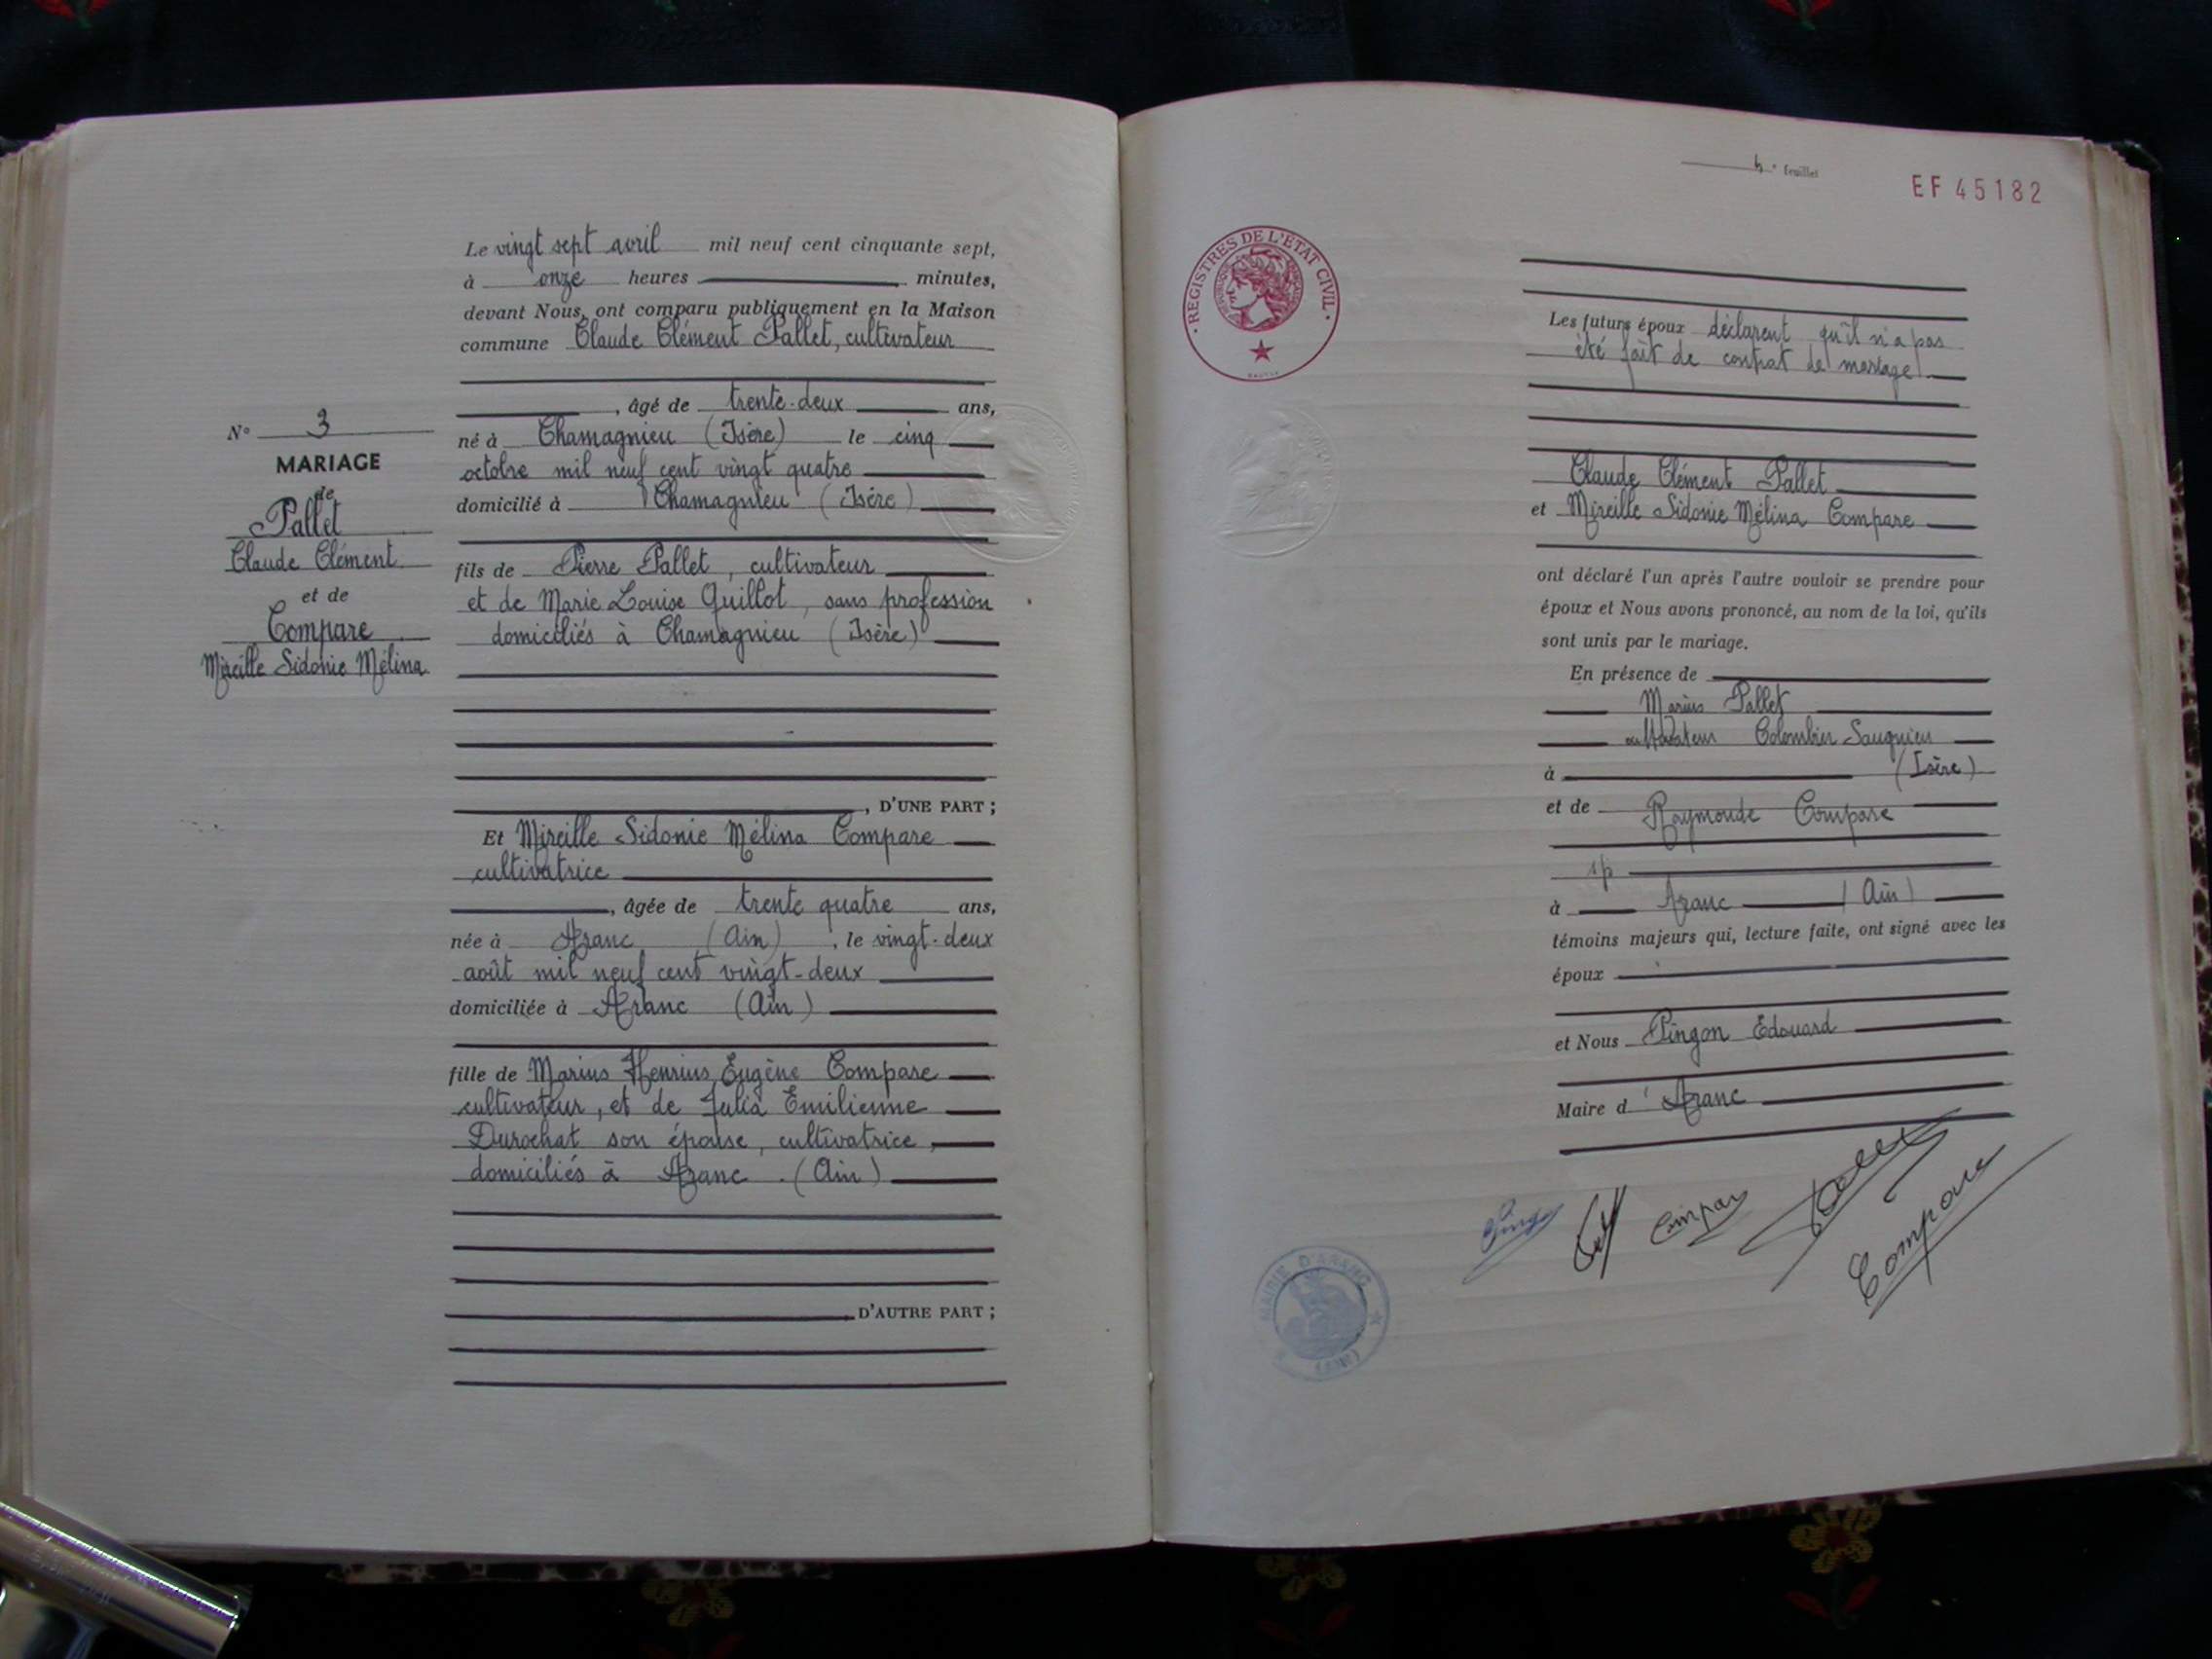 Le vingt sept avril mil neuf cent cinquante sept,
à onze heures minutes,
devant Nous, ont comparu publiquement en la Maison
commune Claude Clément Pallet, cultivateur
, âgé de trente-deux ans,
né à Chamagnieu (Isère) le cinq
octobre mil neuf cent vingt quatre
domicilié à Chamagnieu (Isère)
fils de Pierre Pallet, cultivateur
et de Marie Louise Quillot, sans profession
domiciliés à Chamagnieu (Isère)
, D'UNE PART ;
Et Mireille Sidonie Mélina Compare
cultivatrice
, âgée de trente quatre ans,
née à Aranc (Ain), le vingt-deux
août mil neuf cent vingt-deux
domiciliée à Aranc (Ain)
fille de Marius Henrius Eugène Compare
cultivateur, et de Julia Emilienne
Durochat son épouse, cultivatrice,
domiciliés à Aranc. (Ain)
D'AUTRE PART ;
N° 3
MARIAGE
de
Pallet
Claude Clément
et de
Compare
Mireille Sidonie Mélina
feuillet
EF 45182
REGISTRES DE L'ETAT CIVIL
Les futurs époux déclarent qu'il n'a pas
été fait de contrat de mariage
Claude Clément Pallet
et Mireille Sidonie Mélina Compare
ont déclaré l'un après l'autre vouloir se prendre pour
époux et Nous avons prononcé, au nom de la loi, qu'ils
sont unis par le mariage.
En présence de
Marius Pallet
cultivateur Colombier Saugnieu
à (Isère)
et de Raymonde Compare
sp
à Aranc (Ain)
témoins majeurs qui, lecture faite, ont signé avec les
époux
et Nous Pingon Edouard
Maire d' Aranc
Compare
MAIRIE D'ARANC
(AIN)